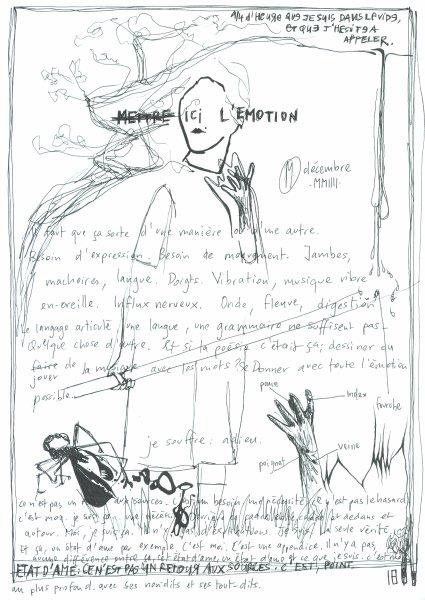 1/4 d'heure que je suis dans le vide,
et que j'hésite a
appeler.
METTRE ici L'EMOTION
11 décembre
-MMIII-
faut que ça sorte d'une manière ou d'une autre.
Besoin d'expression. Besoin de mouvement. Jambes,
machoires, langue. Doigts. Vibration, musique vibre
en-oreille. Influx nerveux. Onde, fleuve, digestion
Le langage articulé une langue, une grammaire ne suffisent pas
Quelque chose d'autre. Et si la poésie c'était ça; dessiner ou
faire de la musique avec les mots? Se Donner avec toute l'émotion
jouer
possible.
paume
index
poignet
veine
je souffre: adieu.
ce n'est pas un aux sources. besoin, une nécessité. n'y est pas le hasard
c'est moi, je suis ça. une dedans et
autour. Moi, je suis ça. Il n'y a pas d'explications. Je suis la seule vérité
Et ça, un état d'ame par exemple. C'est moi. C'est une appendice. Il n'y a pas
aucune différence entre cet état d'ame, un état d'ame et ce que je suis. c'est moi
ETAT D'AME: CE N'EST PAS UN RETOUR AUX SOURCES. C'EST, POINT.
au plus profond. avec ses non-dits et ses tout-dits.
18